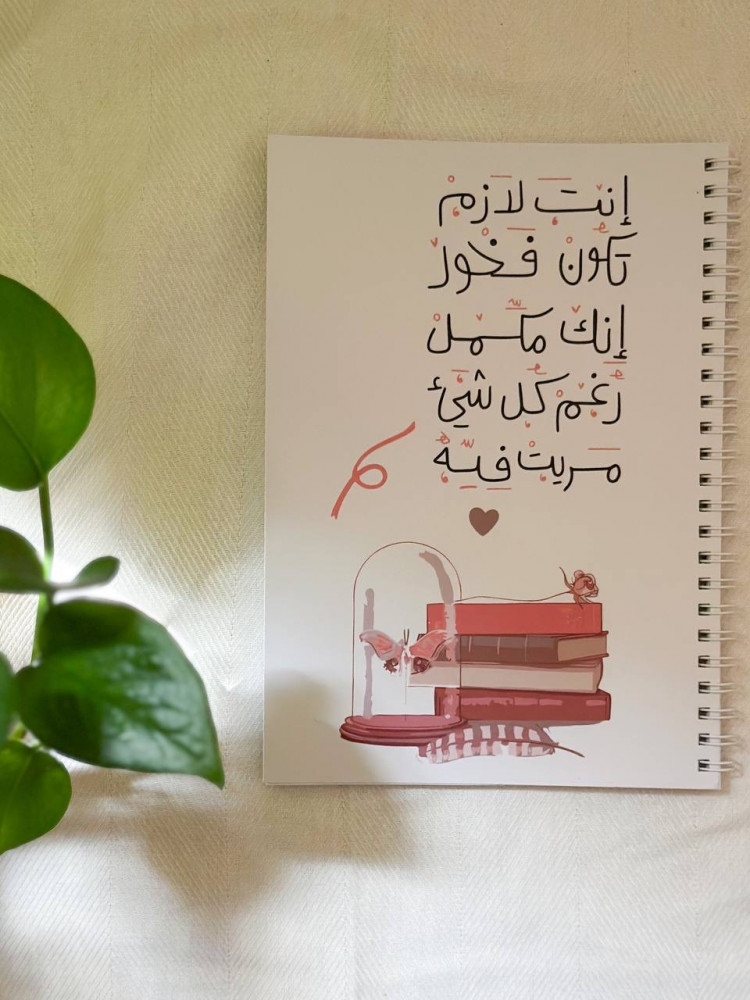 إنت لازم
تكون فخور
إنك مكمل
رغم كل شئ
مريت فيه